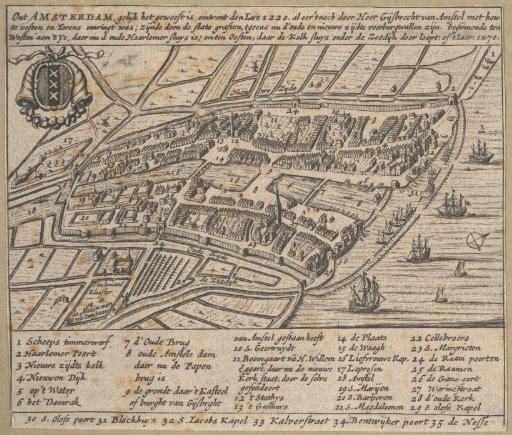 Out AMSTERDAM, gelijk het geweest is, omtrent den Iare 1220. al eer t noch door Heer Gijsbrecht van Amstel met hou-
te vesten en Torens omringt was; zijnde doen de stats grasten, tgeene nu d'oude en nieuwe zijdts voorburgwallen zijn. beginnende ten
Westen aan 't Ye, daer nu d'oude Haarlemer sluys is; en ten Oosten, daar de Kolk sluys onder de Zeedijk door loopt. of t Iaar 1270.
Nieuwe Zyde
Oude Zyde
de Zeedijk
1 Scheeps timmerwerf
2 Haarlemer Poort
3 Nieuwe zijdts kolk
4 Nieuwen Dijk
5 op't Water
6 het Damrak
7 d'Oude Brug
8 oude Amstels dam
daer nu de Papen
brug is
9 de grondt daar't Kasteel
of burght van Gijsbrght
van Amstel gestaan heeft
10 S. Geertruydt
11 Boomgaart va H. Willem
Eggart, daar nu de nieuwe
Kerk staat, door de selve
gefondeert
12 t Stathuys
13 't Gasthuys
14 de Plaats
15 de Waagh
16 Liefvrouwe Kap.
17 Laprosen
18 Amstel
19 S. Marijen
20 S. Barberen
21 S. Magdalenen
22 Cellebroers
23 S. Margrieten
24 de Raam poorten
25 de Raamen
26 de Gans-oort
27 Warmustraet
28 d'oude Kerk
29 S olofs Kapel
30 S. Olofs poort 31 Blockhuys 32 S. Iacobs Kapel 33 Kalverstraet 34 Bentwijker poort 35 de Nesse